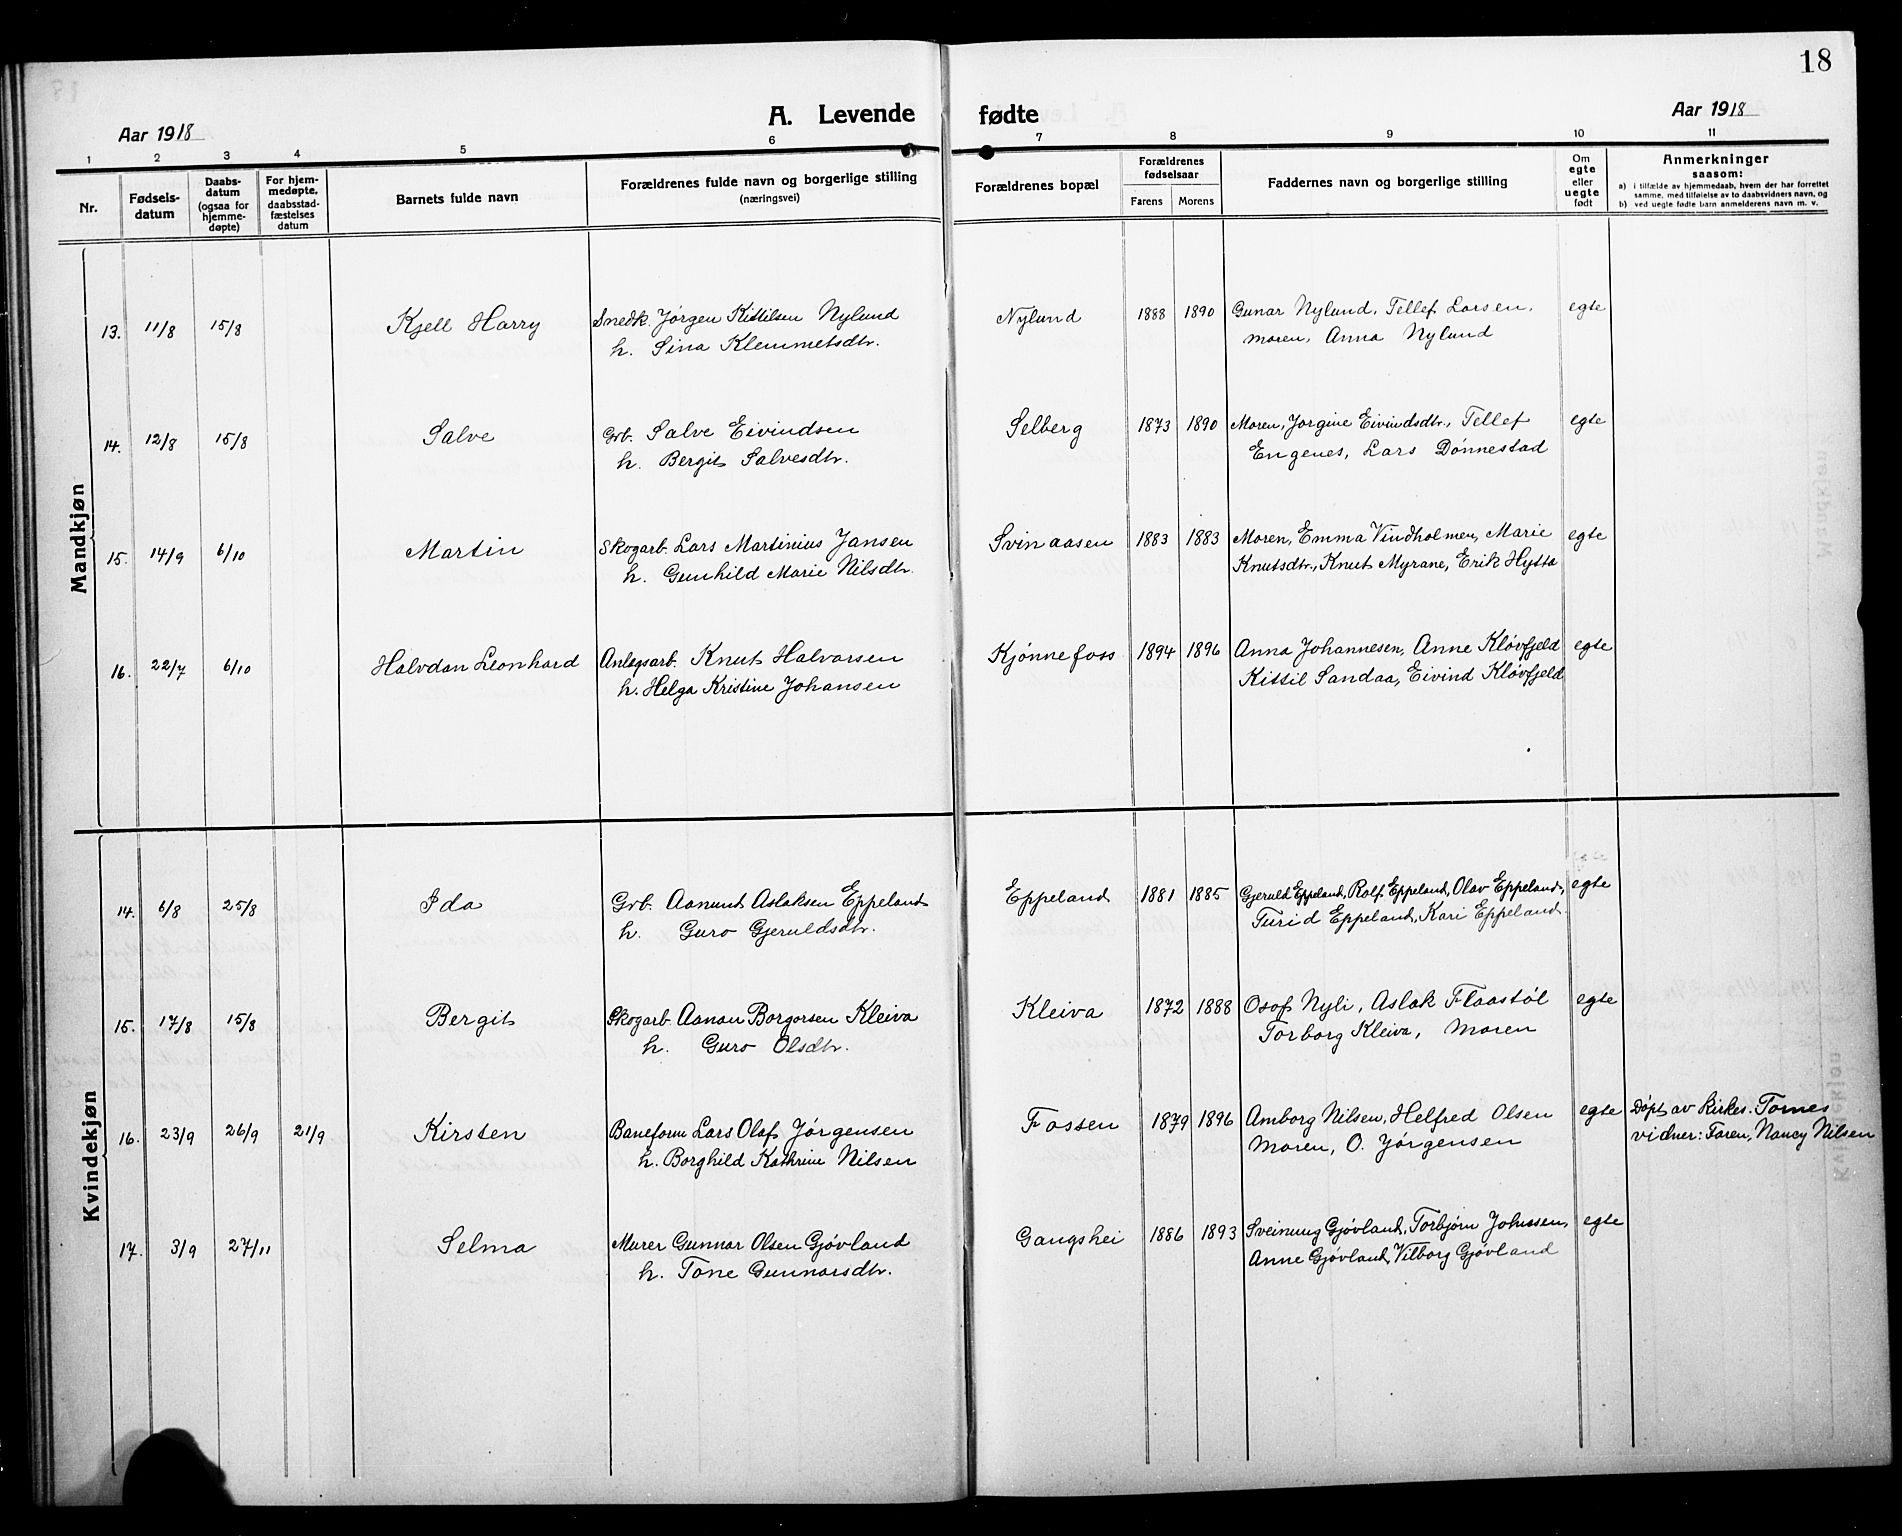 18
A. Levende fødte
Aar 1918
Aar 1918
1 2 3 4 5 6 7 8 9 10 11
Nr.
Fødsels-
datum
Daabs-
datum
(ogsaa for
hjemme-
døpte)
For hjem-
medøpte,
daabsstad-
fæstelses
datum
Barnets fulde navn
Forældrenes fulde navn og borgerlige stilling
(næringsvei)
Forældrenes bopæl
Forældrenes
fødselsaar
Farens Morens
Faddernes navn og borgerlige stilling
Om
egte
eller
uegte
født
Anmerkninger
saasom:
a) i tilfælde av hjemmedaab, hvem der har forrettet
samme, med tilføielse av to daabsvidners navn, og
b) ved uegte fødte barn anmelderens navn m. v.
Mandkjøn
13. 11/8 15/8 Kjell Harry Snedk. Jørgen Kittilsen Nylund Nylund 1888 1890 Gunar Nylund, Tellef Larsen, egte
h. Sina Klemmetsdtr. moren, Anna Nylund
14. 12/8 15/8 Salve Grb. Salve Eivindsen Selberg 1873 1890 Moren, Jorgine Eivindsdtr., Tellef egte
h. Bergit Salvesdtr. Engenes, Lars Dønnestad
15. 14/9 6/10 Martin Skogarb. Lars Martinius Jansen Svinaasen 1883 1883 Moren, Emma Vindholmen, Marie egte
h. Gunhild Marie Nilsdtr. Knutsdtr., Knut Myrane, Erik Hytta
16. 22/7 6/10 Halvdan Leonhard Anlegsarb. Knut Halvorsen Kjønnefoss 1894 1896 Anna Johannesen, Anne Kløvfjeld egte
h. Helga Kristine Johansen Kittil Sandaa, Eivind Kløvfjeld
Kvindekjøn
14. 6/8 25/8 Ida Grb. Aanund Aslaksen Eppeland Eppeland 1881 1885 Gjeruld Eppeland, Rolf Eppeland, Olav Eppeland, egte
h. Guro Gjeruldsdtr. Turid Eppeland, Kari Eppeland
15. 17/8 15/8 Bergit Skogarb. Aanon Borgorsen Kleiva Kleiva 1872 1888 Osof Nyli, Aslak Flaastøl egte
h. Guro Olsdtr. Torborg Kleiva, moren
16. 23/9 26/9 21/9 Kirsten Baneform Lars Olaf Jørgensen Fossen 1879 1896 Amborg Nilsen, Helfred Olsen egte Døpt av Kirkes. Tornes
h. Borghild Kathrine Nilsen Moren, O. Jørgensen vidner: Faren, Nancy Nilsen
17. 3/9 27/11 Selma Murer Gunnar Olsen Gjøvland Gangshei 1886 1893 Sveinung Gjøvland, Torbjørn Johnsen, egte
h. Tone Gunnarsdtr. Anne Gjøvland, Vilborg Gjøvland